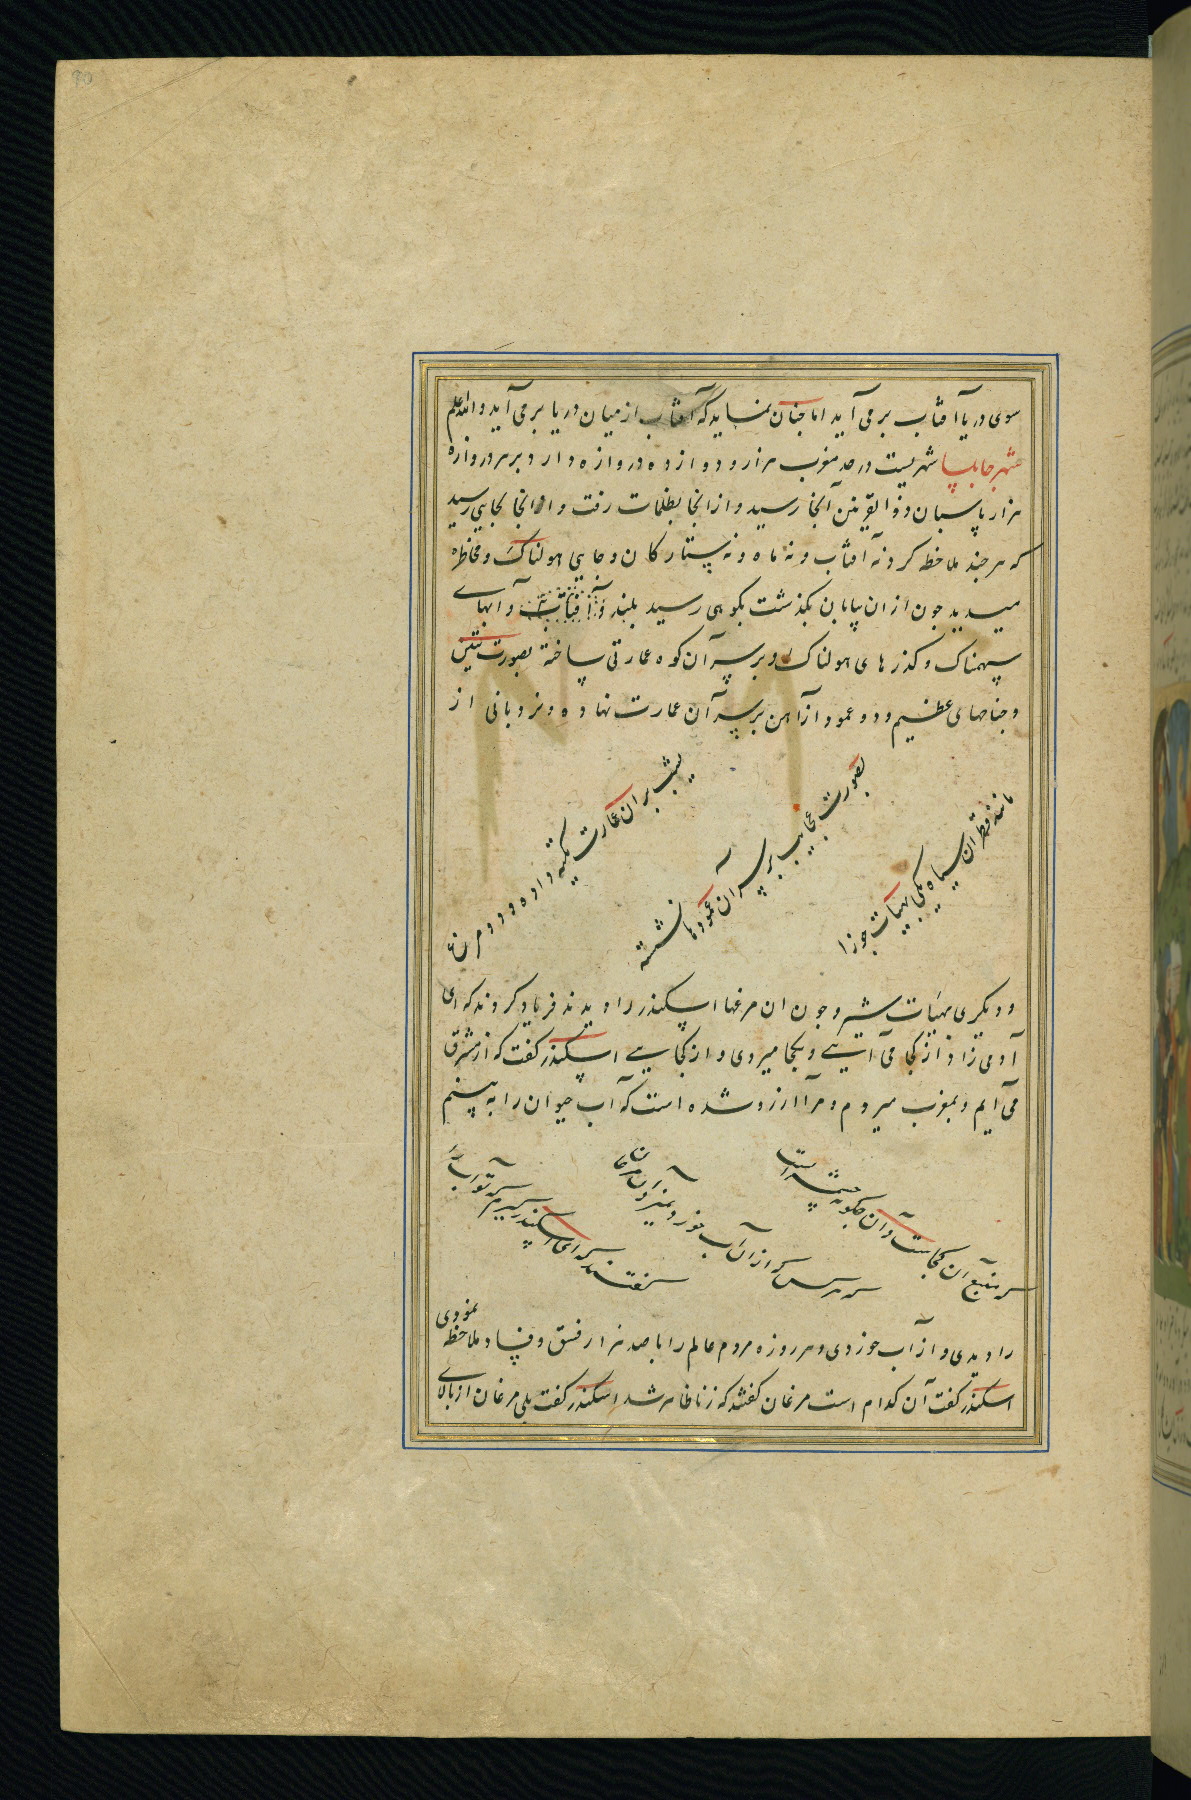 سوی دریا آفتاب بر می آید اما چنان نماید که آفتاب از میان دریا بر می آید والله اعلم
شهر جابلسا شهریست در حد مغرب هزار و دوازده دروازه دارد و بر هر دروازه
هزار پاسبان و ذوالقرنین آنجا رسید و از انجا بظلمات رفت و از انجا بجایی رسید
که هر چند ملاحظه کرد نه آفتاب و نه ماه و نه ستارکان و جایی هولناک و مخاطره
میدید چون از ان بیابان بکذشت بکوهی رسید بلند و آفتاب و آبهای
سهمناک و کذرهای هولناک و بر سر آن کوه عمارتی ساخته بصورت تنین
و جناحهای عظیم و دو عمود از آهن بر سر آن عمارت نهاده و نردبانی از
یشب بر ان عمارت تکیه داده و دو مرغ
بصورت عجایب بر سر آن عمودها نشسته
مانند قطران سیاه یکی بهیات جوزا
و دیکری بهیات شیر و چون ان مرغها اسکندر را دیدند فریاد کردند که ای
آدمی زاد از کجا می آیی و بکجا میروی و از کجایی اسکندر کفت که از مشرق
می آیم و بمغرب میروم و مرا آرزو شده است که آب حیوان را به بینم
که منبع آن کجاست و آن چکونه چشمه است
که هر کس که از ان آب خورد نمیرد ان مرغان
کفتند که ای اسکندر کیرم که تو آب
را دیدی و از آب خوردی و هر روزه مردم عالم را با صد هزار فسق و فساد ملاحظه نمودی
اسکندر کفت آن کدام است مرغان کفتند که زنا ظاهر شد اسکندر کفت بلی مرغان از بالای